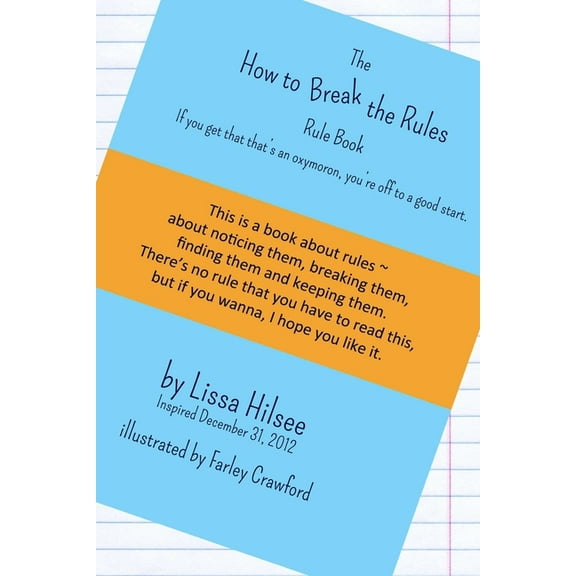 The
How to Break the Rules
Rule Book
If you get that that's an oxymoron, you're off to a good start.
This is a book about rules ~
about noticing them, breaking them,
finding them and keeping them.
There's no rule that you have to read this,
but if you wanna, I hope you like it.
by Lissa Hilsee
Inspired December 31, 2012
illustrated by Farley Crawford